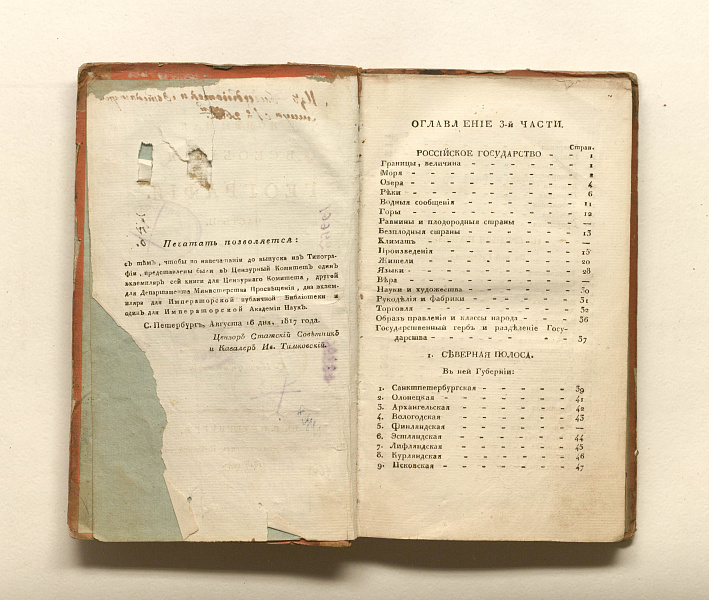 Печатать позволяется:
съ тѣмъ, чтобы по напечатаніи до выпуска изъ Типогра-
фіи, представлены были въ Цензурный Комитетъ одинъ
экземпляръ сей книги для Цензурнаго Комитета, другой
для Департамента Министерства Просвѣщенія, два экзем-
пляра для Императорской публичной Библіотеки и
одинъ для Императорской Академіи Наукъ.
С. Петербургъ, Августа 16 дня, 1817 года.
Цензоръ Статскій Совѣтникъ
и Кавалеръ Ив. Тимковскій.
ОГЛАВЛЕНІЕ 3-й ЧАСТИ.
Стран.
РОССІЙСКОЕ ГОСУДАРСТВО - - 1
Границы, величина - - - - - 1
Моря - - - - - - - 2
Озера - - - - - - - 4
Рѣки - - - - - - - 6
Водныя сообщенія - - - - - 11
Горы - - - - - - - 12
Равнины и плодородныя страны - - - —
Безплодныя страны - - - - - 13
Климатъ - - - - - - - —
Произведенія - - - - - - 15
Жители - - - - - - - 20
Языки - - - - - - - 28
Вѣра - - - - - - - —
Науки и художества - - - - - 30
Рукоделія и фабрики - - - - - 31
Торговля - - - - - - - 32
Образъ правленія и классы народа - - - 36
Государственный гербъ и раздѣленіе Госу-
дарства - - - - - - - 37
1. СѢВЕРНАЯ ПОЛОСА.
Въ ней Губерніи:
1. Санктпетербургская - - - - 39
2. Олонецкая - - - - - - 41
3. Архангельская - - - - - 42
4. Вологодская - - - - - 43
5. Финландская - - - - - —
6. Эстландская - - - - - 44
7. Лифляндская - - - - - 45
8. Курляндская - - - - - 46
9. Псковская - - - - - - 47